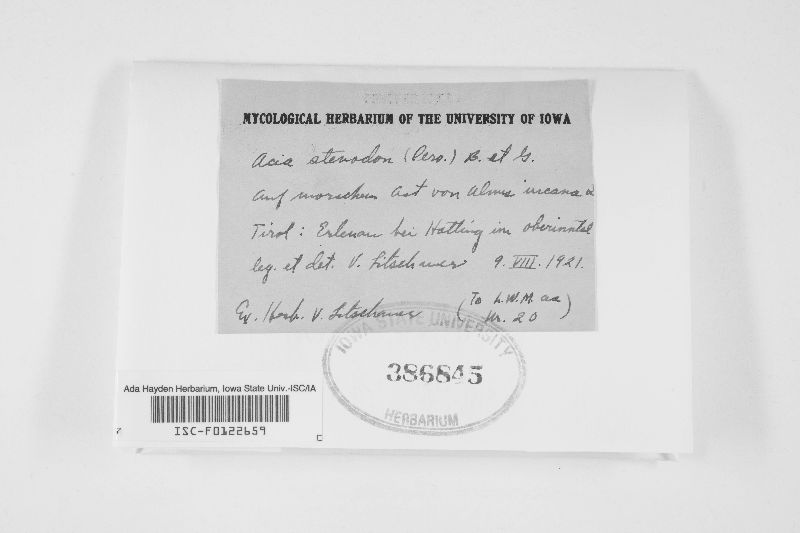 MYCOLOGICAL HERBARIUM OF THE UNIVERSITY OF IOWA
Acia stenodon (Pers.) B. et G.
auf morschem Ast von Alnus incana
Tirol: Erlenau bei Hatting im Oberinntal
leg. et det. V. Litschauer 9. VIII. 1921.
Ex. Herb. V. Litschauer (To L.W.M. as Nr. 20)
IOWA STATE UNIVERSITY
386845
HERBARIUM
Ada Hayden Herbarium, Iowa State Univ.-ISC/IA
ISC-F0122659